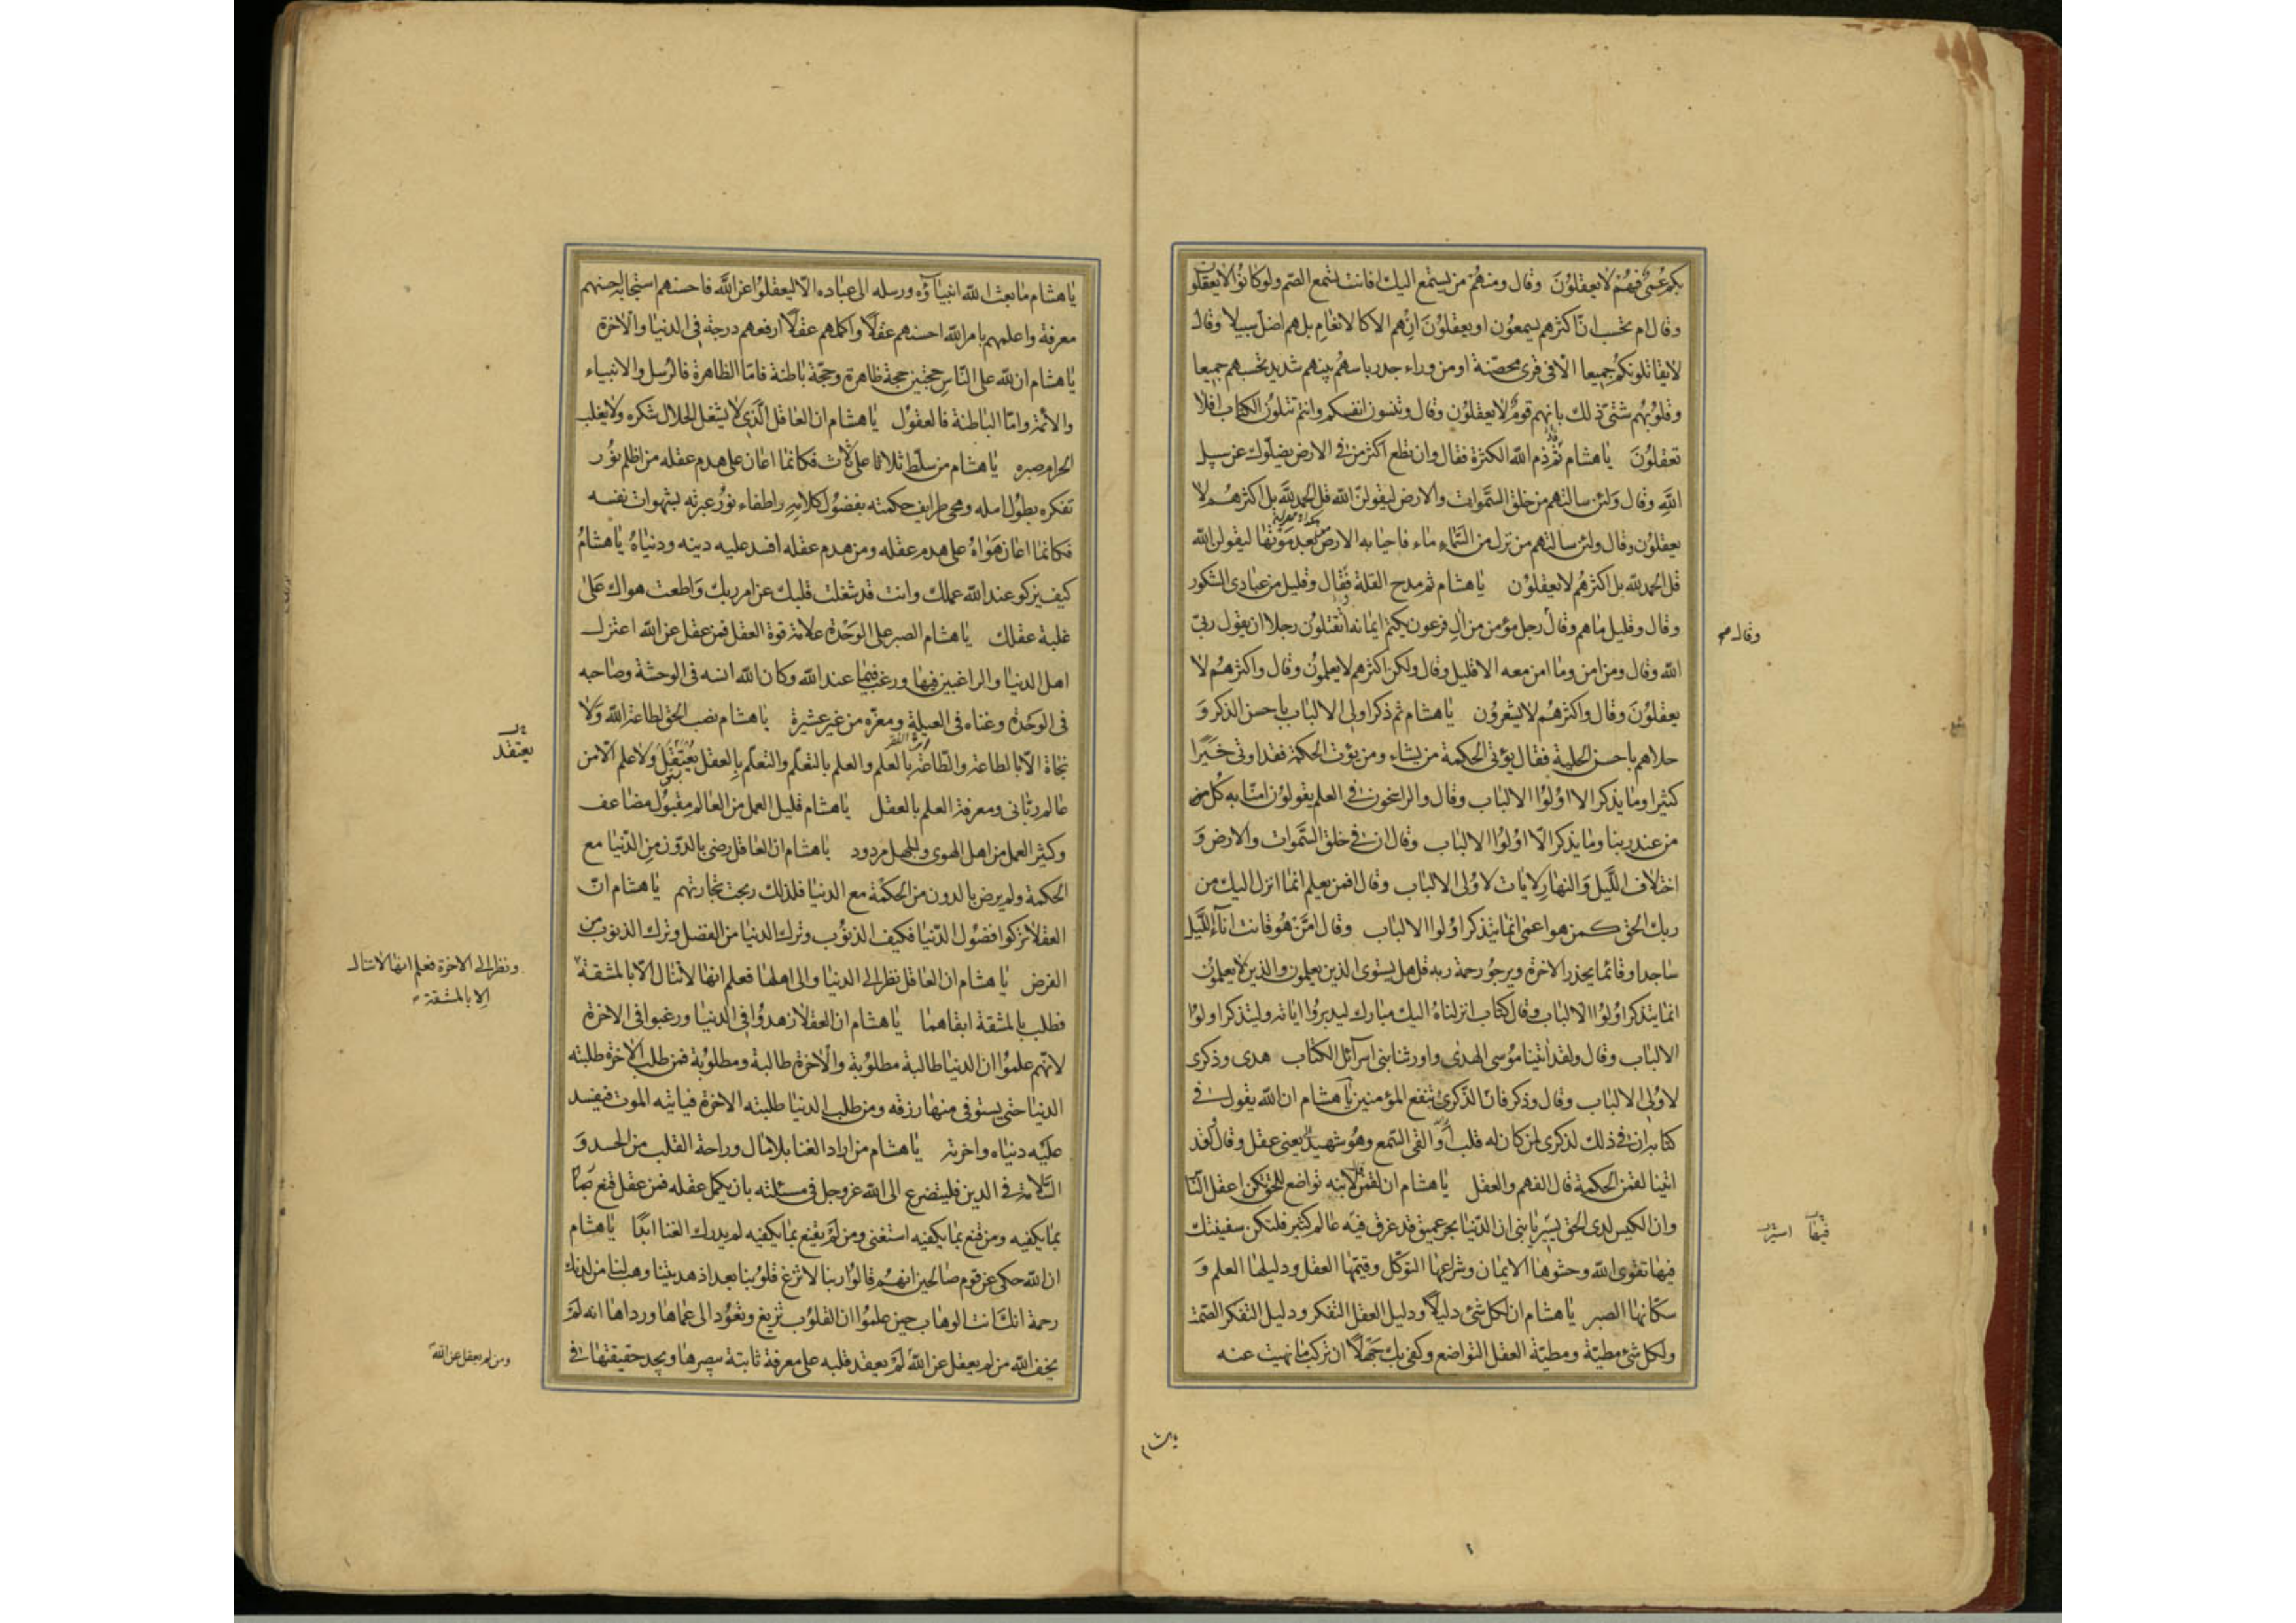 بكم عمى فهم لا يعقلون وقال ومنهم من يستمع اليك افانت تسمع الصم ولو كانوا لا يعقلون
وقال ام تحسب ان اكثرهم يسمعون او يعقلون ان هم الا كالانعام بل هم اضل سبيلا وقال
لا يقاتلونكم جميعا الا في قرى محصنة او من وراء جدر باسهم بينهم شديد تحسبهم جميعا
وقلوبهم شتى ذلك بانهم قوم لا يعقلون وقال وتنسون انفسكم وانتم تتلون الكتاب افلا
تعقلون يا هشام ثم ذم الله الكثرة فقال وان تطع اكثر من في الارض يضلوك عن سبيل
الله وقال ولئن سالتهم من خلق السموات والارض ليقولن الله قل الحمد لله بل اكثرهم لا
يعقلون وقال ولئن سالتهم من نزل من السماء ماء فاحيا به الارض من بعد موتها ليقولن الله
قل الحمد لله بل اكثرهم لا يعقلون يا هشام ثم مدح القلة فقال وقليل من عبادي الشكور
وقال وقليل ما هم وقال رجل مؤمن من ال فرعون يكتم ايمانه اتقتلون رجلا ان يقول ربي
وقال
الله وقال ومن امن وما امن معه الا قليل وقال ولكن اكثرهم لا يعلمون وقال واكثرهم لا
يعقلون وقال واكثرهم لا يشعرون يا هشام ثم ذكر اولي الالباب باحسن الذكر و
حلاهم باحسن الحلية فقال يؤتي الحكمة من يشاء ومن يؤت الحكمة فقد اوتي خيرا
كثيرا وما يذكر الا اولوا الالباب وقال والراسخون في العلم يقولون امنا به كل من
من عند ربنا وما يذكر الا اولوا الالباب وقال ان في خلق السموات والارض و
اختلاف الليل والنهار لايات لاولي الالباب وقال افمن يعلم انما انزل اليك من
ربك الحق كمن هو اعمى انما يتذكر اولوا الالباب وقال امن هو قانت اناء الليل
ساجدا وقائما يحذر الاخرة ويرجو رحمة ربه قل هل يستوي الذين يعلمون والذين لا يعلمون
انما يتذكر اولوا الالباب وقال كتاب انزلناه اليك مبارك ليدبروا اياته وليتذكر اولوا
الالباب وقال ولقد اتينا موسى الهدى واورثنا بني اسرائل الكتاب هدى وذكرى
لاولي الالباب وقال وذكر فان الذكرى تنفع المؤمنين يا هشام ان الله يقول في
كتابه ان في ذلك لذكرى لمن كان له قلب او القى السمع وهو شهيد يعني عقل وقال لقد
اتينا لقمن الحكمة قال الفهم والعقل يا هشام ان لقمن قال لابنه تواضع للحق تكن اعقل النا
وان الكيس لدى الحق يسير يا بني ان الدنيا بحر عميق قد غرق فيه عالم كثير فلتكن سفينتك
فيها اسير
فيها تقوى الله وحشوها الايمان وشراعها التوكل وقيمها العقل ودليلها العلم و
سكانها الصبر يا هشام ان لكل شئ دليلا ودليل العقل التفكر ودليل التفكر الصمت
ولكل شئ مطية ومطية العقل التواضع وكفى بك جهلا ان تركب ما نهيت عنه
يا هشام
يا هشام ما بعث الله انبياؤه ورسله الى عباده الا ليعقلوا عن الله فاحسنهم استجابة احسنهم
معرفة واعلمهم بامر الله احسنهم عقلا واكملهم عقلا ارفعهم درجة في الدنيا والاخرة
يا هشام ان لله على الناس حجتين حجة ظاهرة وحجة باطنة فاما الظاهرة فالرسل والانبياء
والائمة واما الباطنة فالعقول يا هشام ان العاقل الذي لا يشغل الحلال شكره ولا يغلب
الحرام صبره يا هشام من سلط ثلاثا على ثلاث فكانما اعان على هدم عقله من اظلم نور
تفكره بطول امله ومحى طرايف حكمته بفضول كلامه واطفاء نور عبرته بشهوات نفسه
فكانما اعان هواه على هدم عقله ومن هدم عقله افسد عليه دينه ودنياه يا هشام
كيف يزكو عند الله عملك وانت قد شغلت قلبك عن امر ربك واطعت هواك على
غلبة عقلك يا هشام الصبر على الوحدة علامة قوة العقل فمن عقل عن الله اعتزل
اهل الدنيا والراغبين فيها ورغب فيما عند الله وكان الله انسه في الوحشة وصاحبه
في الوحدة وغناه في العيلة ومعزه من غير عشيرة يا هشام نصب الحق لطاعة الله ولا
نجاة الا بالطاعة والطاعة بالعلم والعلم بالتعلم والتعلم بالعقل يعتقل ولا علم الا من
يعتقد
عالم رباني ومعرفة العلم بالعقل يا هشام قليل العمل من العالم مقبول مضاعف
وكثير العمل من اهل الهوى والجهل مردود يا هشام ان العاقل رضي بالدون من الدنيا مع
الحكمة ولم يرض بالدون من الحكمة مع الدنيا فلذلك ربحت تجارتهم يا هشام ان
العقلا تركوا فضول الدنيا فكيف الذنوب وترك الدنيا من الفضل وترك الذنوب من
الفرض يا هشام ان العاقل نظر الى الدنيا والى اهلها فعلم انها لا تنال الا بالمشقة
ونظر الى الاخرة فعلم انها لا تنال
الا بالمشقة
فطلب بالمشقة ابقاهما يا هشام ان العقلا زهدوا في الدنيا ورغبوا في الاخرة
لانهم علموا ان الدنيا طالبة مطلوبة والاخرة طالبة ومطلوبة فمن طلب الاخرة طلبته
الدنيا حتى يستوفي منها رزقه ومن طلب الدنيا طلبته الاخرة فياتيه الموت فيفسد
عليه دنياه واخرته يا هشام من اراد الغنا بلا مال وراحة القلب من الحسد و
السلامة في الدين فليتضرع الى الله عز وجل في مسئلته بان يكمل عقله فمن عقل قنع
بما يكفيه ومن قنع بما يكفيه استغنى ومن لم يقنع بما يكفيه لم يدرك الغنا ابدا يا هشام
ان الله حكى عن قوم صالحين انهم قالوا ربنا لا تزغ قلوبنا بعد اذ هديتنا وهب لنا من لدنك
رحمة انك انت الوهاب حين علموا ان القلوب تزيغ وتعود الى عماها ورداها انه لم
يخف الله من لم يعقل عن الله لم يعقد قلبه على معرفة ثابتة يبصرها ويجد حقيقتها في
ومن لم يعقل عن الله